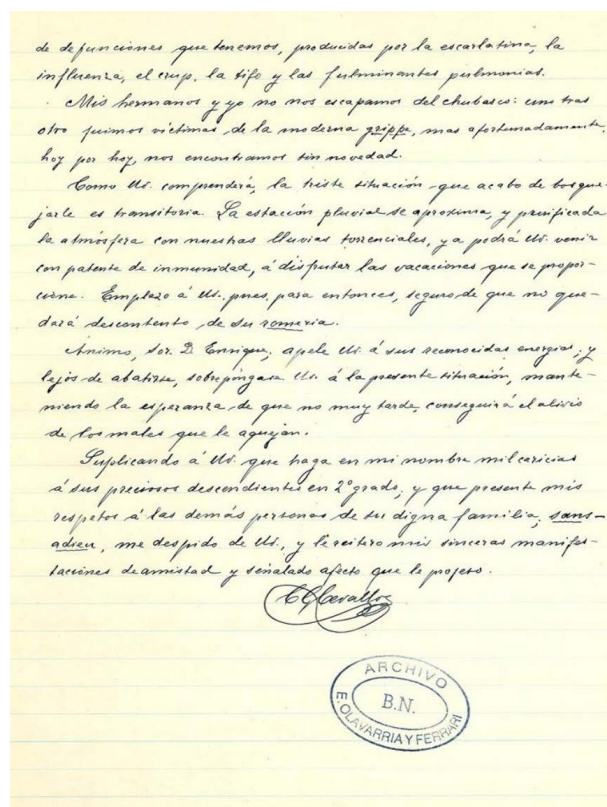 de defunciones que tenemos, producidas por la escarlatina, la
influenza, el crup, la tifo y las fulminantes pulmonias.
Mis hermanos y yo no nos escapamos del chubasco: uno tras
otro fuimos victimas de la moderna grippe, mas afortunadamente,
hoy por hoy, nos encontramos sin novedad.
Como Ud. comprenderá, la triste situación que acabo de bosque-
jarle es transitoria. La estación pluvial se aproxima, y purificada
la atmósfera con nuestras lluvias torrenciales, ya podrá Ud. venir
con patente de inmunidad, á disfrutar las vacaciones que se propor-
cione. Emplazo á Ud., pues, para entonces, seguro de que no que-
dará descontento de su romeria.
Ánimo, Sor. D. Enrique; apele Ud. á sus reconocidas energias, y
lejos de abatirse, sobrepóngase Ud. á la presente situación, mante-
niendo la esperanza de que no muy tarde, conseguirá el alivio
de los males que le aquejan.
Suplicando á Ud. que haga en mi nombre mil caricias
á sus preciosos descendientes en 2º grado, y que presente mis
respetos á las demás personas de su digna familia, sans-
adieu, me despido de Ud., y le reitero mis sinceras manifes-
taciones de amistad y señalado afecto que le profeso.
Cevallos
ARCHIVO
B.N.
E. OLAVARRIA Y FERRARI